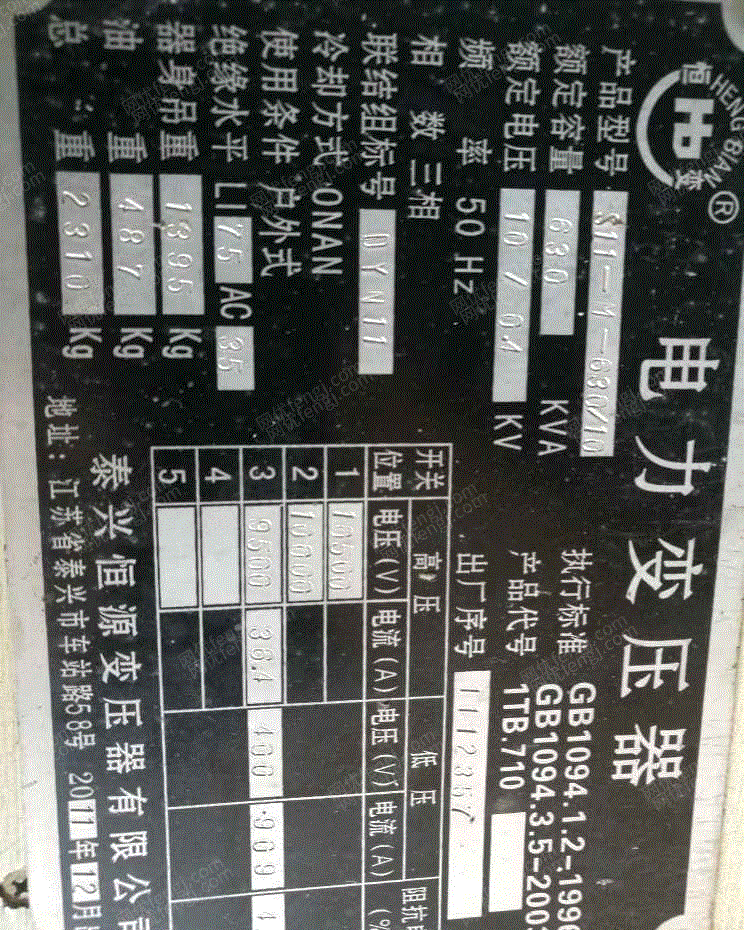 恒 HENG BIAN 变 ®
电力变压器
产品型号 S11-M-630/10
额定容量 630 KVA
额定电压 10/0.4 KV
频率 50 Hz
相数 三相
联结组标号 DYN11
冷却方式 ONAN
使用条件 户外式
绝缘水平 LI 75 AC 35
器身吊重 1395 Kg
油重 487 Kg
总重 2310 Kg
执行标准 GB1094.1.2-1996
GB1094.3.5-2003
产品代号 1TB.710
出厂序号 1112357
开关位置 高压 低压
电压(V) 电流(A) 电压(V) 电流(A)
1 10500
2 10000
3 9500 36.4 400 909
4
5
泰兴恒源变压器有限公司
地址:江苏省泰兴市车站路58号 2011年12月